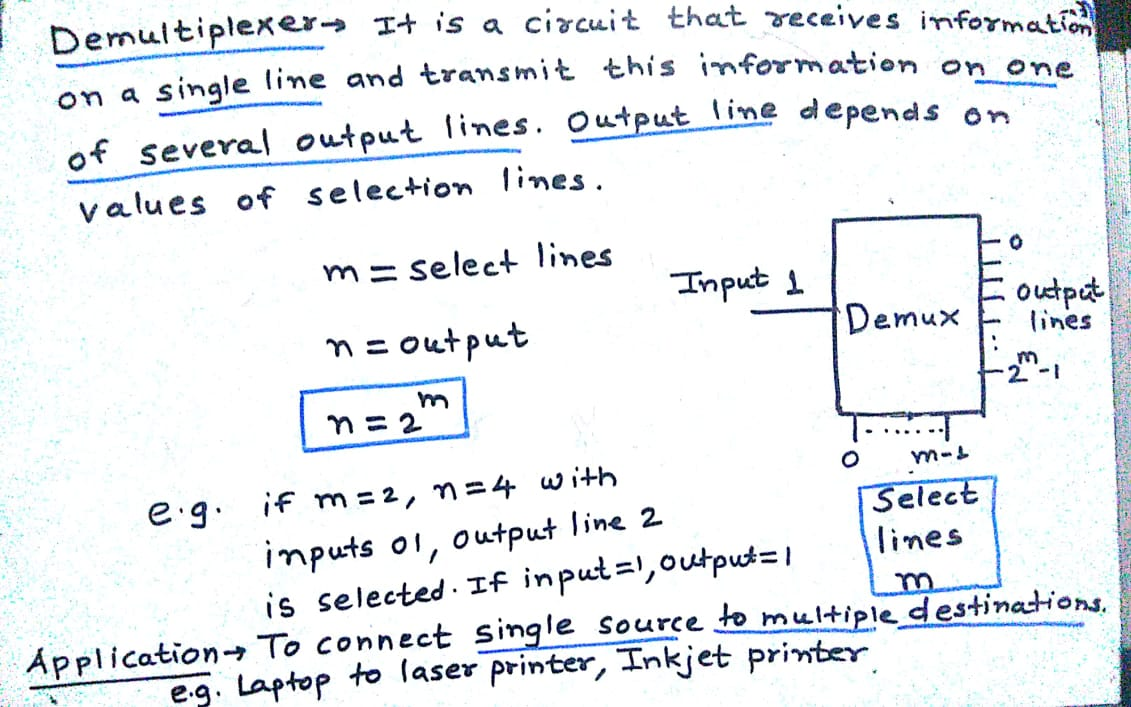 Demultiplexer→ It is a circuit that receives information
on a single line and transmit this information on one
of several output lines. Output line depends on
values of selection lines.
m = select lines
n = output
n = 2^m
Input 1
Demux
0
output
lines
2^m-1
0 m-1
Select
lines
m
e.g. if m=2, n=4 with
inputs 01, output line 2
is selected. If input=1, output=1
Application→ To connect single source to multiple destinations.
e.g. Laptop to laser printer, Inkjet printer